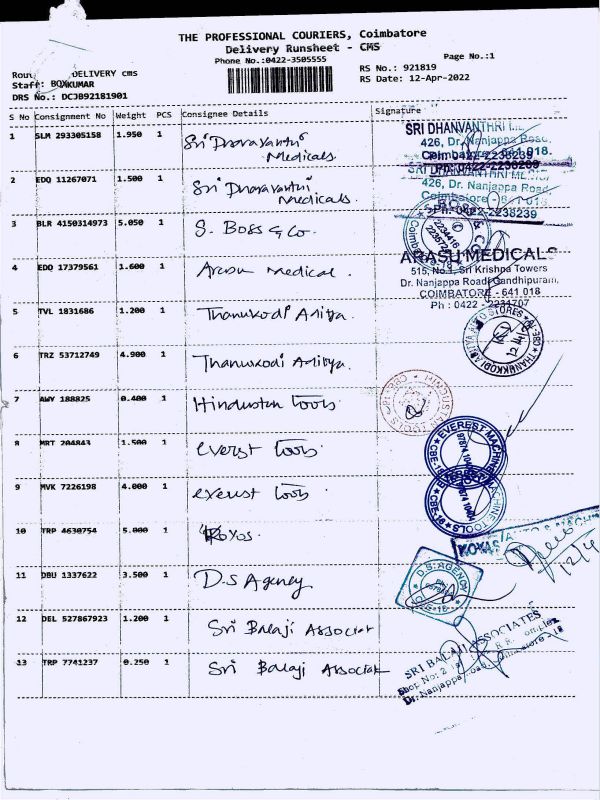 THE PROFESSIONAL COURIERS, Coimbatore
Delivery Runsheet - CMS
Phone No.:0422-3505555
Page No.:1
RS No.: 921819
RS Date: 12-Apr-2022
DELIVERY cms
Staff: BOXKUMAR
DRS No.: DCJ092181901
S No Consignment No Weight PCS Consignee Details Signature
1 SLM 293305158 1.950 1 Sri Dhanvanthri Medicals
SRI DHANVANTHRI
426, Dr. Nanjappa Road,
2 EDQ 11267071 1.500 1 Sri Dhanvanthri Medicals.
426, Dr. Nanjappa Road
Ph: 0422-2238239
3 BLR 4150314973 5.050 1 S. Boss & Co.
4 EDQ 17379561 1.600 1 Arasu medical.
ARASU MEDICALS
515, No.1, Sri Krishna Towers
Dr. Nanjappa Road, Gandhipuram,
COIMBATORE - 641 018
Ph : 0422 - 2231707
5 TVL 1831686 1.200 1 Thanukodi Aditya.
6 TRZ 53712749 4.900 1 Thanukodi Aditya.
7 AWY 188825 0.400 1 Hindustan tools
HINDUSTAN TOOLS
8 MRT 204843 1.500 1 Everst tools
EVEREST MACHINE TOOLS
CBE-18
9 MVK 7226198 4.000 1 exerust tools
10 TRP 4630754 5.000 1
11 DBU 1337622 3.500 1 D.S Agency
D.S. AGENCY
12/4
12 DEL 527867923 1.200 1 Sri Balaji Associat
SRI BALAJI ASSOCIATES
13 TRP 7741237 0.250 1 Sri Balaji Associat
Dr. Nanjappa Road, Coimbatore-18